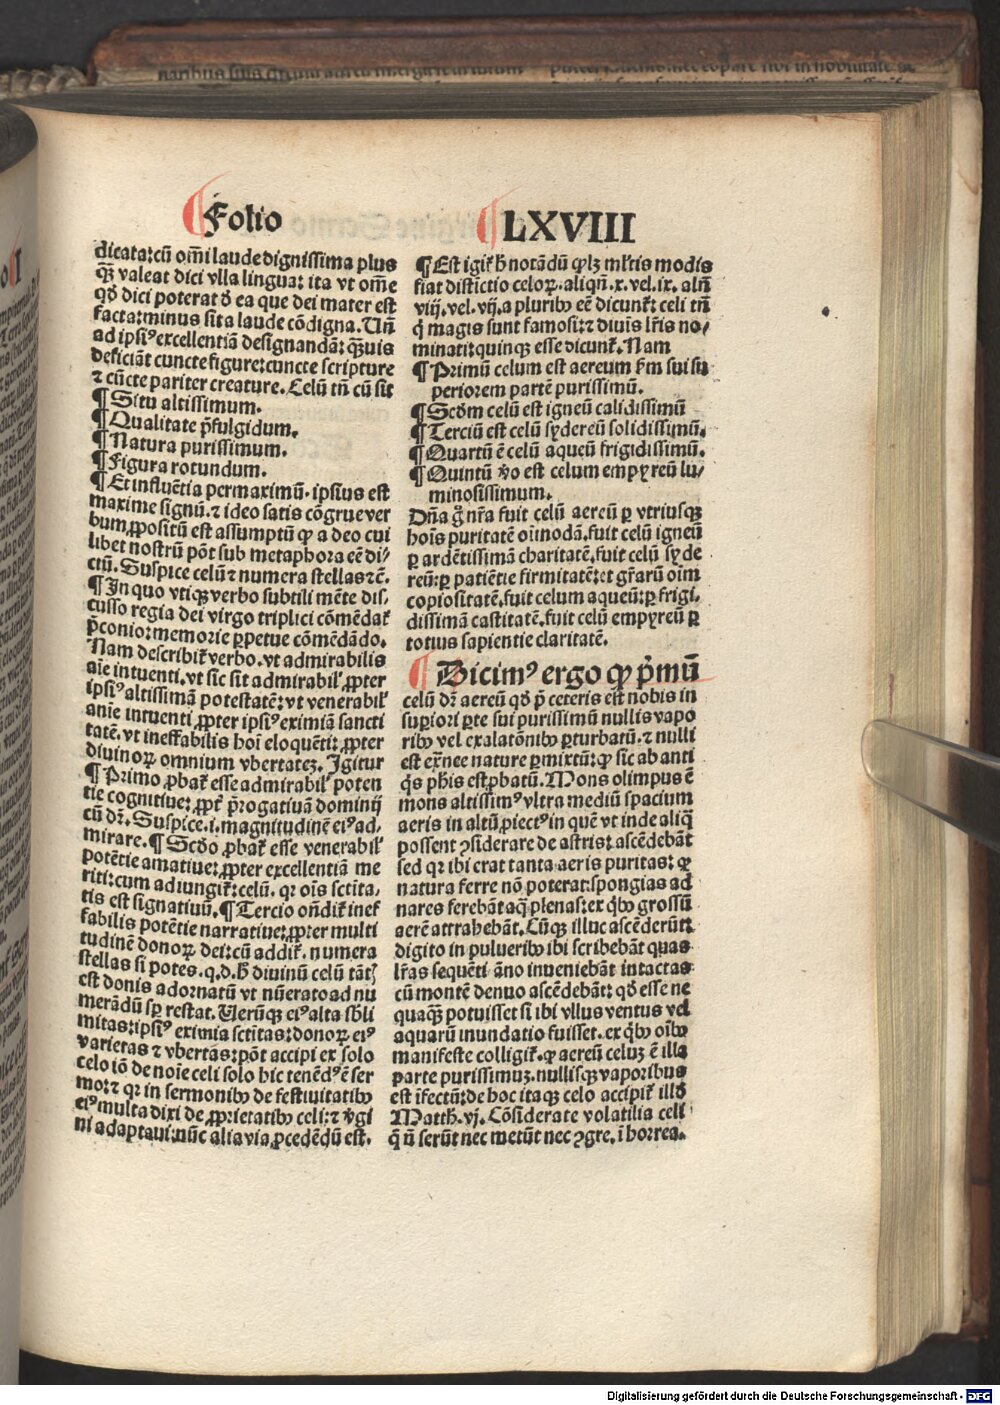 Folio LXVIII
dicata: cū om̄i laude dignissima plus
qꝫ̄ valeat dici vlla lingua: ita vt om̄e
qd̄ dici poterat d̄ ea que dei mater est
facta: minus sit a laude cōdigna. Uñ
ad ipsiꝰ excellentiā designandā: qꝫ̄uis
deficiāt cuncte figure: cuncte scripture
⁊ cūcte pariter creature. Celū tñ cū sit
¶ Situ altissimum.
¶ Qualitate p̄fulgidum.
¶ Natura purissimum.
¶ Figura rotundum.
¶ Et influētia permaximū. ipsius est
maxime signū. ⁊ ideo satis cōgrue ver
bum ꝓpositū est assumptū ꝙ a deo cui
libet nostrū pōt sub metaphora eē di/
ctū. Suspice celū ⁊ numera stellas ⁊c̄.
¶ In quo vtiqꝫ verbo subtili mēte dis/
cusso regia dei virgo triplici cōmēdat̉
p̄conio: memorie ꝑpetue cōmēdādo.
Nam describit̉ verbo. vt admirabilis
aīe intuenti. vt sic sit admirabil̓ ꝓpter
ipsiꝰ altissimā potestatē: vt venerabil̓
anīe intuenti ꝓpter ipsiꝰ eximiā sancti
tatē. vt ineffabilis hoī eloquēti: ꝓpter
diuinoꝝ omnium vbertatez. Igitur
¶ Primo ꝓbat̉ esse admirabil̓ poten
tie cognitiue: ꝓpt̓ p̄rogatiuā dominij
cū dr̄. Suspice. i. magnitudinē eiꝰ ad/
mirare. ¶ Scd̄o ꝓbat̉ esse venerabil̓
potētie amatiue: ꝓpter excellentiā me
riti: cum adiungit̉: celū. qꝛ oīs sctita/
tis est signatiuū. ¶ Tercio oñdit̉ inef
fabilis potētie narratiue: ꝓpter multi
tudinē donoꝝ dei: cū addit̉. numera
stellas si potes. q. d. h̄ diuinū celū tātꝭ
est donis adornatū vt nūerato ad nu
merādū sꝑ restat. Uerūqꝫ eiꝰ alta sb̓li
mitas: ipsiꝰ eximia sctitas: donoꝝ eiꝰ
varietas ⁊ vbertas: pōt accipi ex solo
celo iō de noīe celi solo hic tenēdꝰ ē ser
mo: ⁊ qꝛ in sermonibꝫ de festiuitatibꝫ
eiꝰ multa dixi de ꝓprietatibꝫ celi: ⁊ v̓gi
ni adaptaui: nūc alia via ꝓcedēdū est.
¶ Est igit̉ h̄ notādū ꝙ lꝫ ml̓tis modis
fiat distīctio celoꝝ. aliqñ. x. vel. ix. alñ
viij. vel. vij. a pluribꝫ eē dicunt̉: celi tñ
q̇ magis sunt famosi: ⁊ diuīs lr̄is no/
minati: quinqꝫ esse dicunt̉. Nam
¶ Primū celum est aereum s̄m sui su
periorem partē purissimū.
¶ Scd̄m celū est igneū calidissimū
¶ Terciū est celū sydereū solidissimū.
¶ Quartū ē celū aqueū frigidissimū.
¶ Quintū v̓o est celum empyreū lu/
minosissimum.
Dñā g̊ nr̄a fuit celū aereū ꝑ vtriusqꝫ
hoīs puritatē oīmodā. fuit celū igneū
ꝑ ardētissimā charitatē. fuit celū syde
reū: ꝑ patiētie firmitatē: et gr̄arū oīm
copiositatē. fuit celum aqueū: ꝑ frigi.
dissimā castitatē. fuit celū empyreū ꝑ
totius sapientie claritatē.
¶ Dicimꝰ ergo ꝙ p̓mū
celū dr̄ aereū qd̄ p̄ ceteris est nobis in
suꝑiori ꝑte sui purissimū nullis vapo
ribꝫ vel exalatōnibꝫ ꝑturbatū. ⁊ nulli
est ext̓nee nature ꝑmixtū: ꝙ sic ab anti
q̇s ph̄is est ꝓbatū. Mons olimpus ē
mons altissimꝰ vltra mediū spacium
aeris in altū ꝓiectꝰ in quē vt inde aliq̇
possent ꝯsiderare de astris: ascēdebāt
sed qꝛ ibi erat tanta aeris puritas: ꝙ
natura ferre nō poterat: spongias ad
nares ferebāt aq̄ plenas: ex q̇bꝫ grossū
aerē attrahebāt. Cūqꝫ illuc ascēderūt:
digito in pulueribꝫ ibi scribebāt quas
lr̄as sequēti āno inueniebāt intactas
cū montē denuo ascēdebāt: qd̄ esse ne
quaqꝫ potuisset si ibi vllus ventus vel
aquarū inundatio fuisset. ex q̇bꝫ oībꝫ
manifeste colligit̉. ꝙ aereū celuꝫ ē illa
parte purissimuꝫ. nullisqꝫ vaporibus
est īfectū: de hoc itaqꝫ celo accipit̉ illd̄
Matth. vj. Cōsiderate volatilia celi
q̄ ñ serūt nec metūt nec ꝯgre. ī horrea.
Digitalisierung gefördert durch die Deutsche Forschungsgemeinschaft - DFG